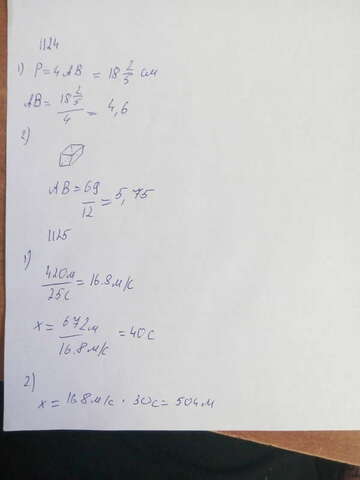 1124
1) P = 4 AB = 18 2/5 см
AB = 18 2/5 / 4 = 4,6
2)
AB = 69 / 12 = 5,75
1125
1)
420м / 25с = 16.8 м/с
x = 672м / 16.8 м/с = 40с
2)
x = 16.8 м/с · 30с = 504 м